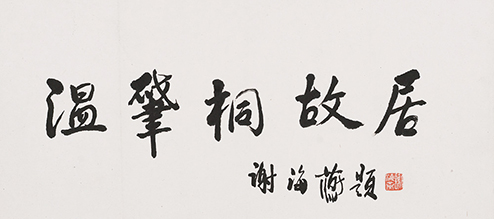 温肇桐故居
谢海燕题